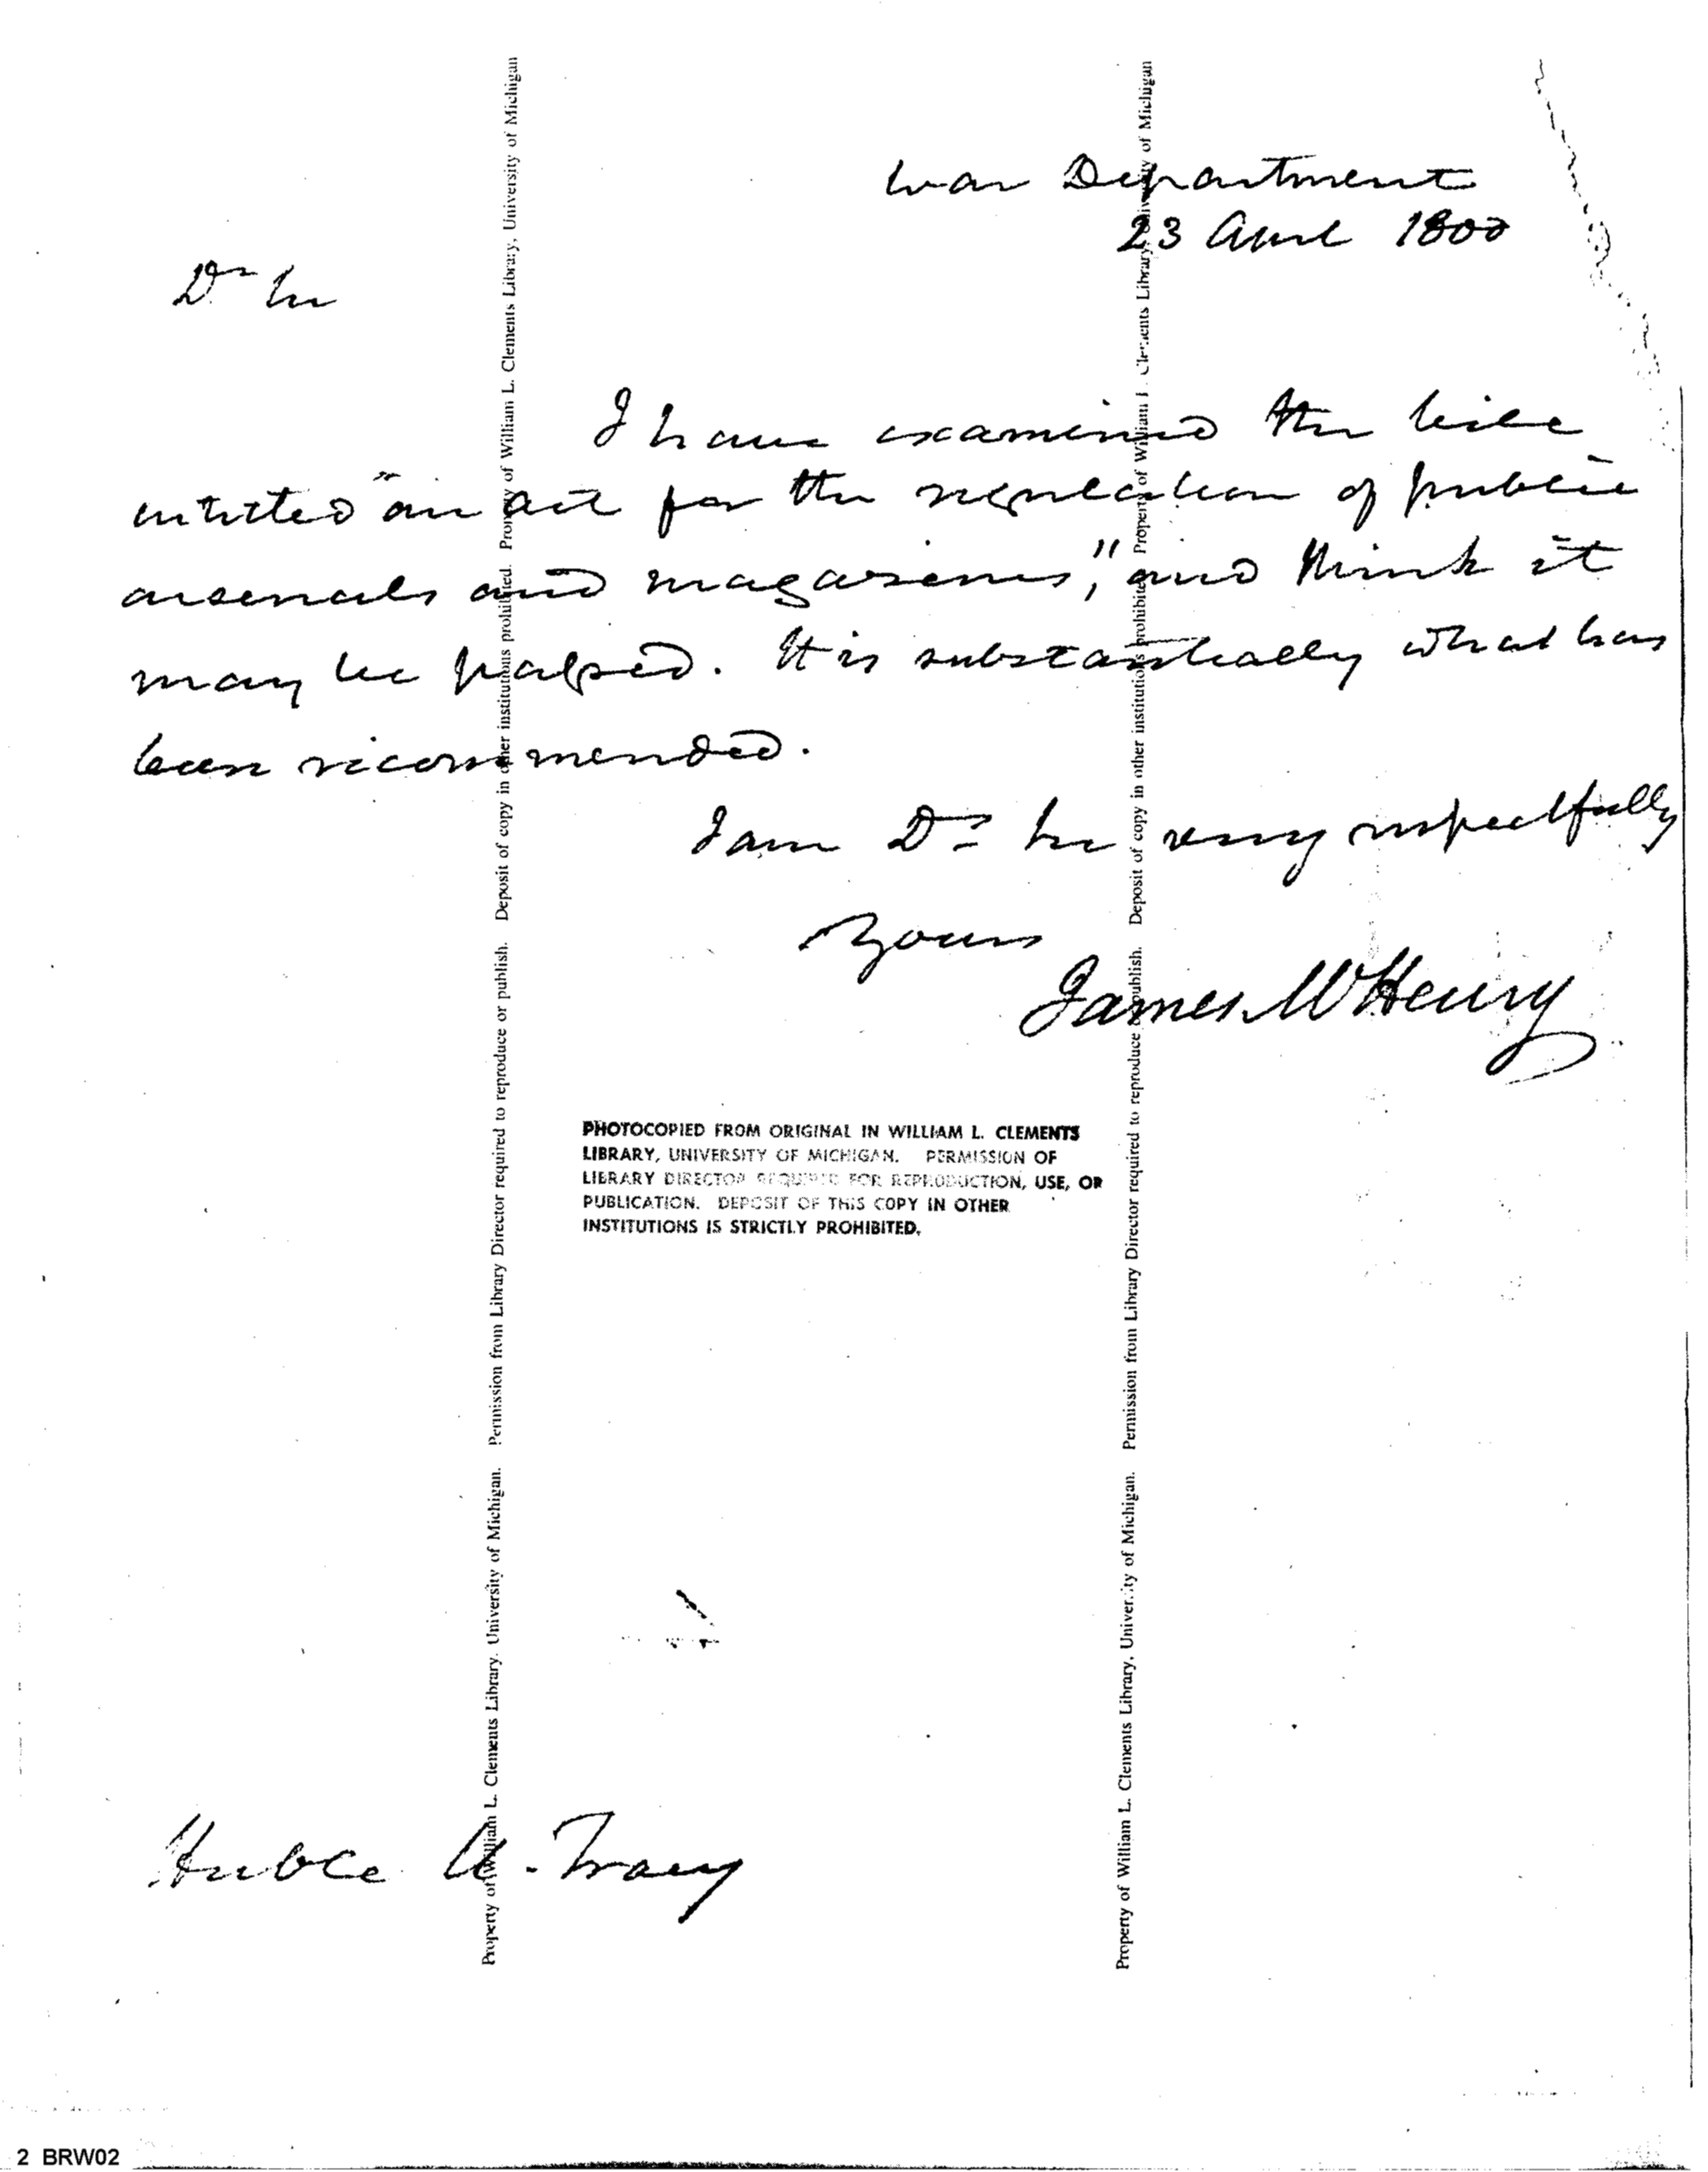 War Department
23 April 1800
Dr Sir
I have examined the bill
intitled "an act for the regulation of public
arsenals and magazines", and think it
may be passed. It is substantially what has
been recommended.
I am Dr. Sir very respectfully
Yours
James McHenry
PHOTOCOPIED FROM ORIGINAL IN WILLIAM L. CLEMENTS
LIBRARY, UNIVERSITY OF MICHIGAN. PERMISSION OF
LIBRARY DIRECTOR REQUIRED FOR REPRODUCTION, USE, OR
PUBLICATION. DEPOSIT OF THIS COPY IN OTHER
INSTITUTIONS IS STRICTLY PROHIBITED.
Honble U. Tracy
Property of William L. Clements Library, University of Michigan. Permission from Library Director required to reproduce or publish. Deposit of copy in other institutions prohibited. Property of William L. Clements Library, University of Michigan
Property of William L. Clements Library, University of Michigan. Permission from Library Director required to reproduce or publish. Deposit of copy in other institutions prohibited. Property of William L. Clements Library, University of Michigan
2 BRW02